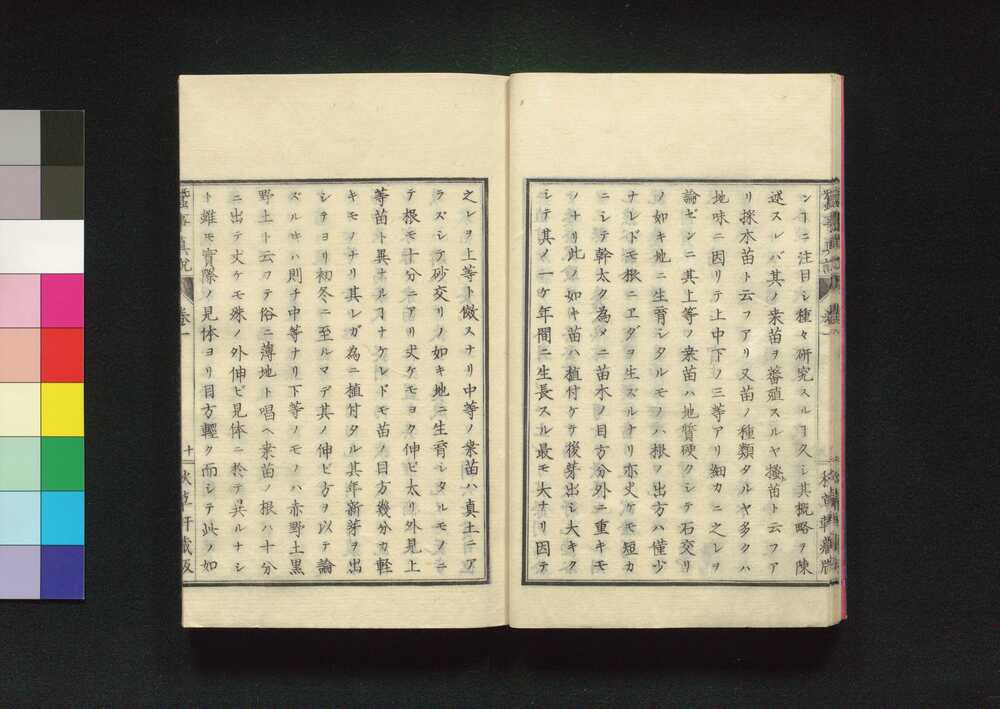 ンヿニ注目シ種々研究スルヿ久シ其概略ヲ陳
述スレバ其ノ桒苗ヲ蕃殖スルヤ搔苗ト云フア
リ採木苗ト云フアリ又苗ノ種類タルヤ多クハ
地味ニ因リテ上中下ノ三等アリ細カニ之レヲ
論ゼンニ其上等ノ桒苗ハ地質硬クシテ石交リ
ノ如キ地ニ生育シタルモノハ根ノ出方ハ僅少
ナレドモ根ニエダヲ生ズルナリ亦𠀋ケモ短カ
ニシテ幹太ク為メニ苗木ノ目方分外ニ重キモ
ノナリ此ノ如キ苗ハ植付ケテ後芽出シ大キク
シテ其ノ一ケ年間ニ生長スル最モ大ナリ因テ
之レヲ上等ト傚スナリ中等ノ桒苗ハ真土ニア
ラズシテ砂交リノ如キ地ニ生育シタルモノニ
テ根モ十分ニアリ𠀋ケモヨク伸ビ太リ外見上
等苗ト異ナルヿナケレドモ苗ノ目方幾分カ軽
キモノナリ其レガ為ニ植付タル其年新芽ヲ出
シテヨリ初冬ニ至ルマデ其ノ伸ビ方ヲ以テ論
ズルキハ則チ中等ナリ下等ノモノハ赤野土黒
野土ト云フテ俗ニ薄地ト唱ヘ桒苗ノ根ハ十分
ニ出テ丈ケモ殊ノ外伸ビ見体ニ於テ異ルナシ
ト雖モ實際ノ見体ヨリ目方輕ク而シテ此ノ如
巻一
十
秋草軒蔵版